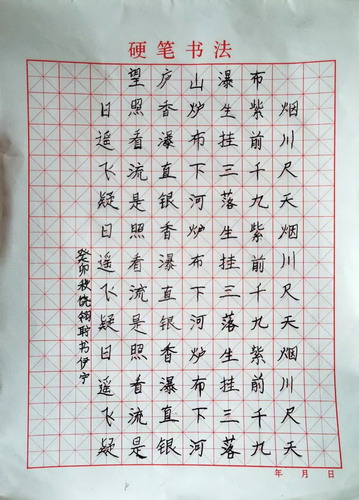 硬笔书法
望庐山瀑布
日照香炉生紫烟
遥看瀑布挂前川
飞流直下三千尺
疑是银河落九天
日照香炉生紫烟
遥看瀑布挂前川
飞流直下三千尺
疑是银河落九天
日照香炉生紫烟
遥看瀑布挂前川
飞流直下三千尺
疑是银河落九天
癸卯秋饶书伊宁
年月日